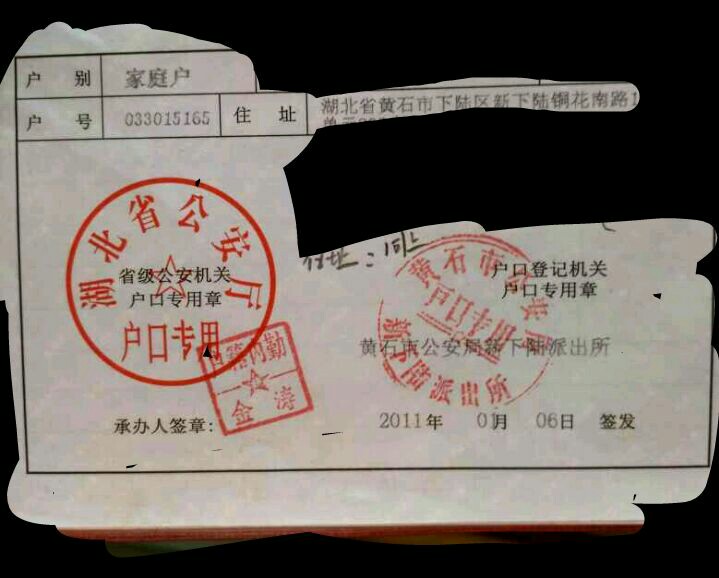 户 别 家庭户
户 号 033015165 住 址 湖北省黄石市下陆区新下陆铜花南路1
单元
湖北省公安厅
户口专用
省级公安机关
户口专用章
住址：同上
户口登记机关
户口专用章
黄石市公安局新下陆派出所
黄石市公安局
户口专用
新下陆派出所
户籍内勤
金涛
承办人签章:
2011年 01月 06日 签发